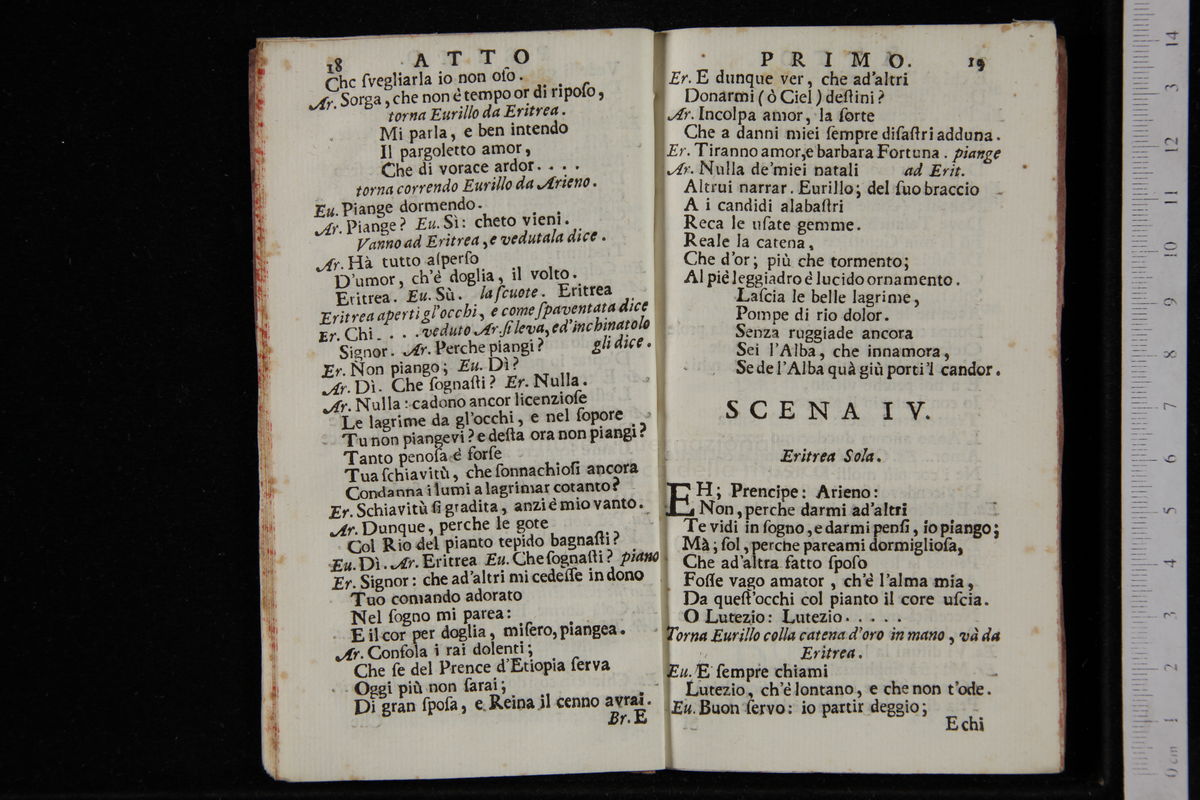 18 ATTO
Che ſvegliarla io non oſo.
Ar. Sorga, che non è tempo or di ripoſo,
torna Eurillo da Eritrea.
Mi parla, e ben intendo
Il pargoletto amor,
Che di vorace ardor. . . .
torna correndo Eurillo da Arieno.
Eu. Piange dormendo.
Ar. Piange? Eu. Sì: cheto vieni.
Vanno ad Eritrea, e vedutala dice.
Ar. Hà tutto aſperſo
D'umor, ch'è doglia, il volto.
Eritrea. Eu. Sù. la ſcuote. Eritrea
Eritrea aperti gl'occhi, e come ſpaventata dice
Er. Chi. . . . veduto Ar. ſi leva, ed'inchinatolo
Signor. Ar. Perche piangi? gli dice.
Er. Non piango; Eu. Dì?
Ar. Dì. Che ſognaſti? Er. Nulla.
Ar. Nulla: cadono ancor licenzioſe
Le lagrime da gl'occhi, e nel ſopore
Tu non piangevi? e deſta ora non piangi?
Tanto penoſa è forſe
Tua ſchiavitù, che ſonnachioſi ancora
Condanna i lumi a lagrimar cotanto?
Er. Schiavitù ſi gradita, anzi è mio vanto.
Ar. Dunque, perche le gote
Col Rio del pianto tepido bagnaſti?
Eu. Dì. Ar. Eritrea Eu. Che ſognaſti? piano
Er. Signor: che ad'altri mi cedeſſe in dono
Tuo comando adorato
Nel ſogno mi parea:
E il cor per doglia, miſero, piangea.
Ar. Conſola i rai dolenti;
Che ſe del Prence d'Etiopia ſerva
Oggi più non ſarai;
Di gran ſpoſa, e Reina il cenno avrai.
Br. E
PRIMO. 19
Er. E dunque ver, che ad'altri
Donarmi (ò Ciel) deſtini?
Ar. Incolpa amor, la ſorte
Che a danni miei ſempre diſaſtri adduna.
Er. Tiranno amor, e barbara Fortuna. piange
Ar. Nulla de'miei natali ad Erit.
Altrui narrar. Eurillo; del ſuo braccio
A i candidi alabaſtri
Reca le uſate gemme.
Reale la catena,
Che d'or; più che tormento;
Al piè leggiadro è lucido ornamento.
Laſcia le belle lagrime,
Pompe di rio dolor.
Senza ruggiade ancora
Sei l'Alba, che innamora,
Se de l'Alba quà giù porti'l candor.
SCENA IV.
Eritrea Sola.
EH; Prencipe: Arieno:
Non, perche darmi ad'altri
Te vidi in ſogno, e darmi penſi, io piango;
Mà; ſol, perche pareami dormiglioſa,
Che ad'altra fatto ſpoſo
Foſſe vago amator, ch'è l'alma mia,
Da queſt'occhi col pianto il core uſcia.
O Lutezio: Lutezio. . . . .
Torna Eurillo colla catena d'oro in mano, và da
Eritrea.
Eu. E ſempre chiami
Lutezio, ch'è lontano, e che non t'ode.
Eu. Buon ſervo: io partir deggio;
E chi